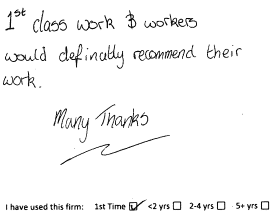 1st class work & workers
would definatly recommend their
work.
Many Thanks
I have used this firm: 1st Time ☑ <2 yrs ☐ 2-4 yrs ☐ 5+ yrs ☐